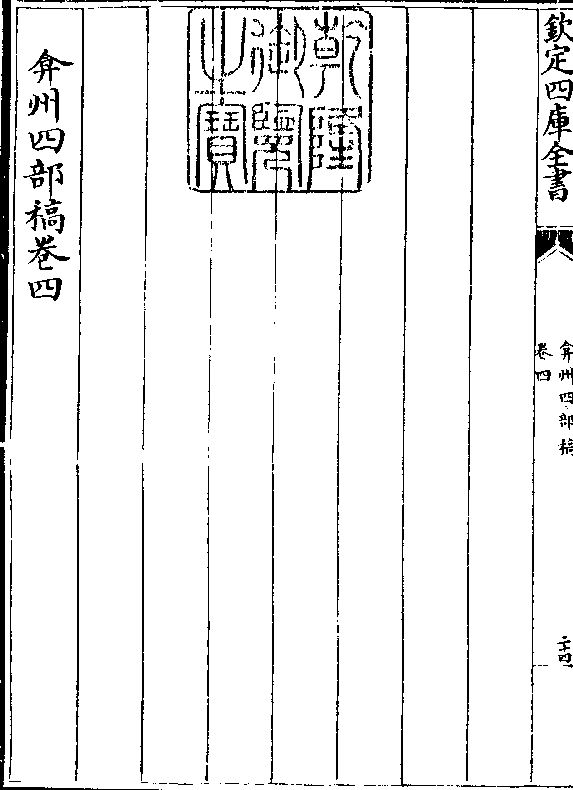 欽定四庫全書
弇州四部稿
卷四
二十四
乾隆御覽之寶
弇州四部稿卷四